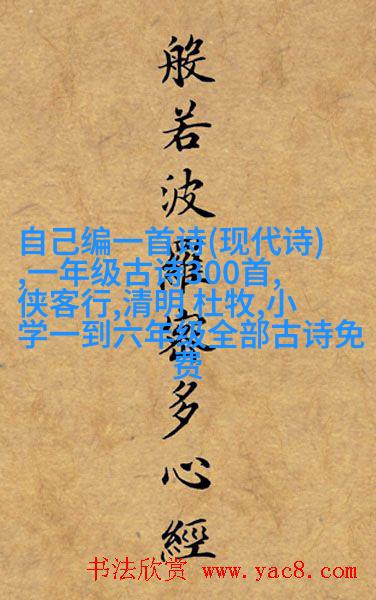 般若波羅蜜多心經
自己编一首诗(现代诗)
,一年级古诗300首,
侠客行,清明,杜牧,小
学一到六年级全部古诗免
费
书法欣赏 www.yac8.com